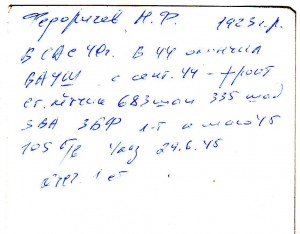 Федоричев Н.Ф. 1923 г.р.
В СА с 40г. В 44 окончил
ВАУШ с сент. 44 - фронт
ст. лётчик 683 шап 335 шад
3ВА 3БФ л-т к маю 45
105 б/в Указ 29.6.45